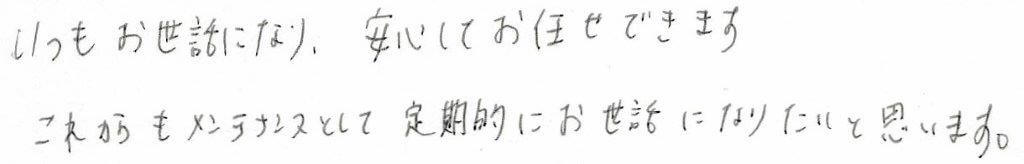 いつもお世話になり、安心してお任せできます
これからもメンテナンスとして定期的にお世話になりたいと思います。